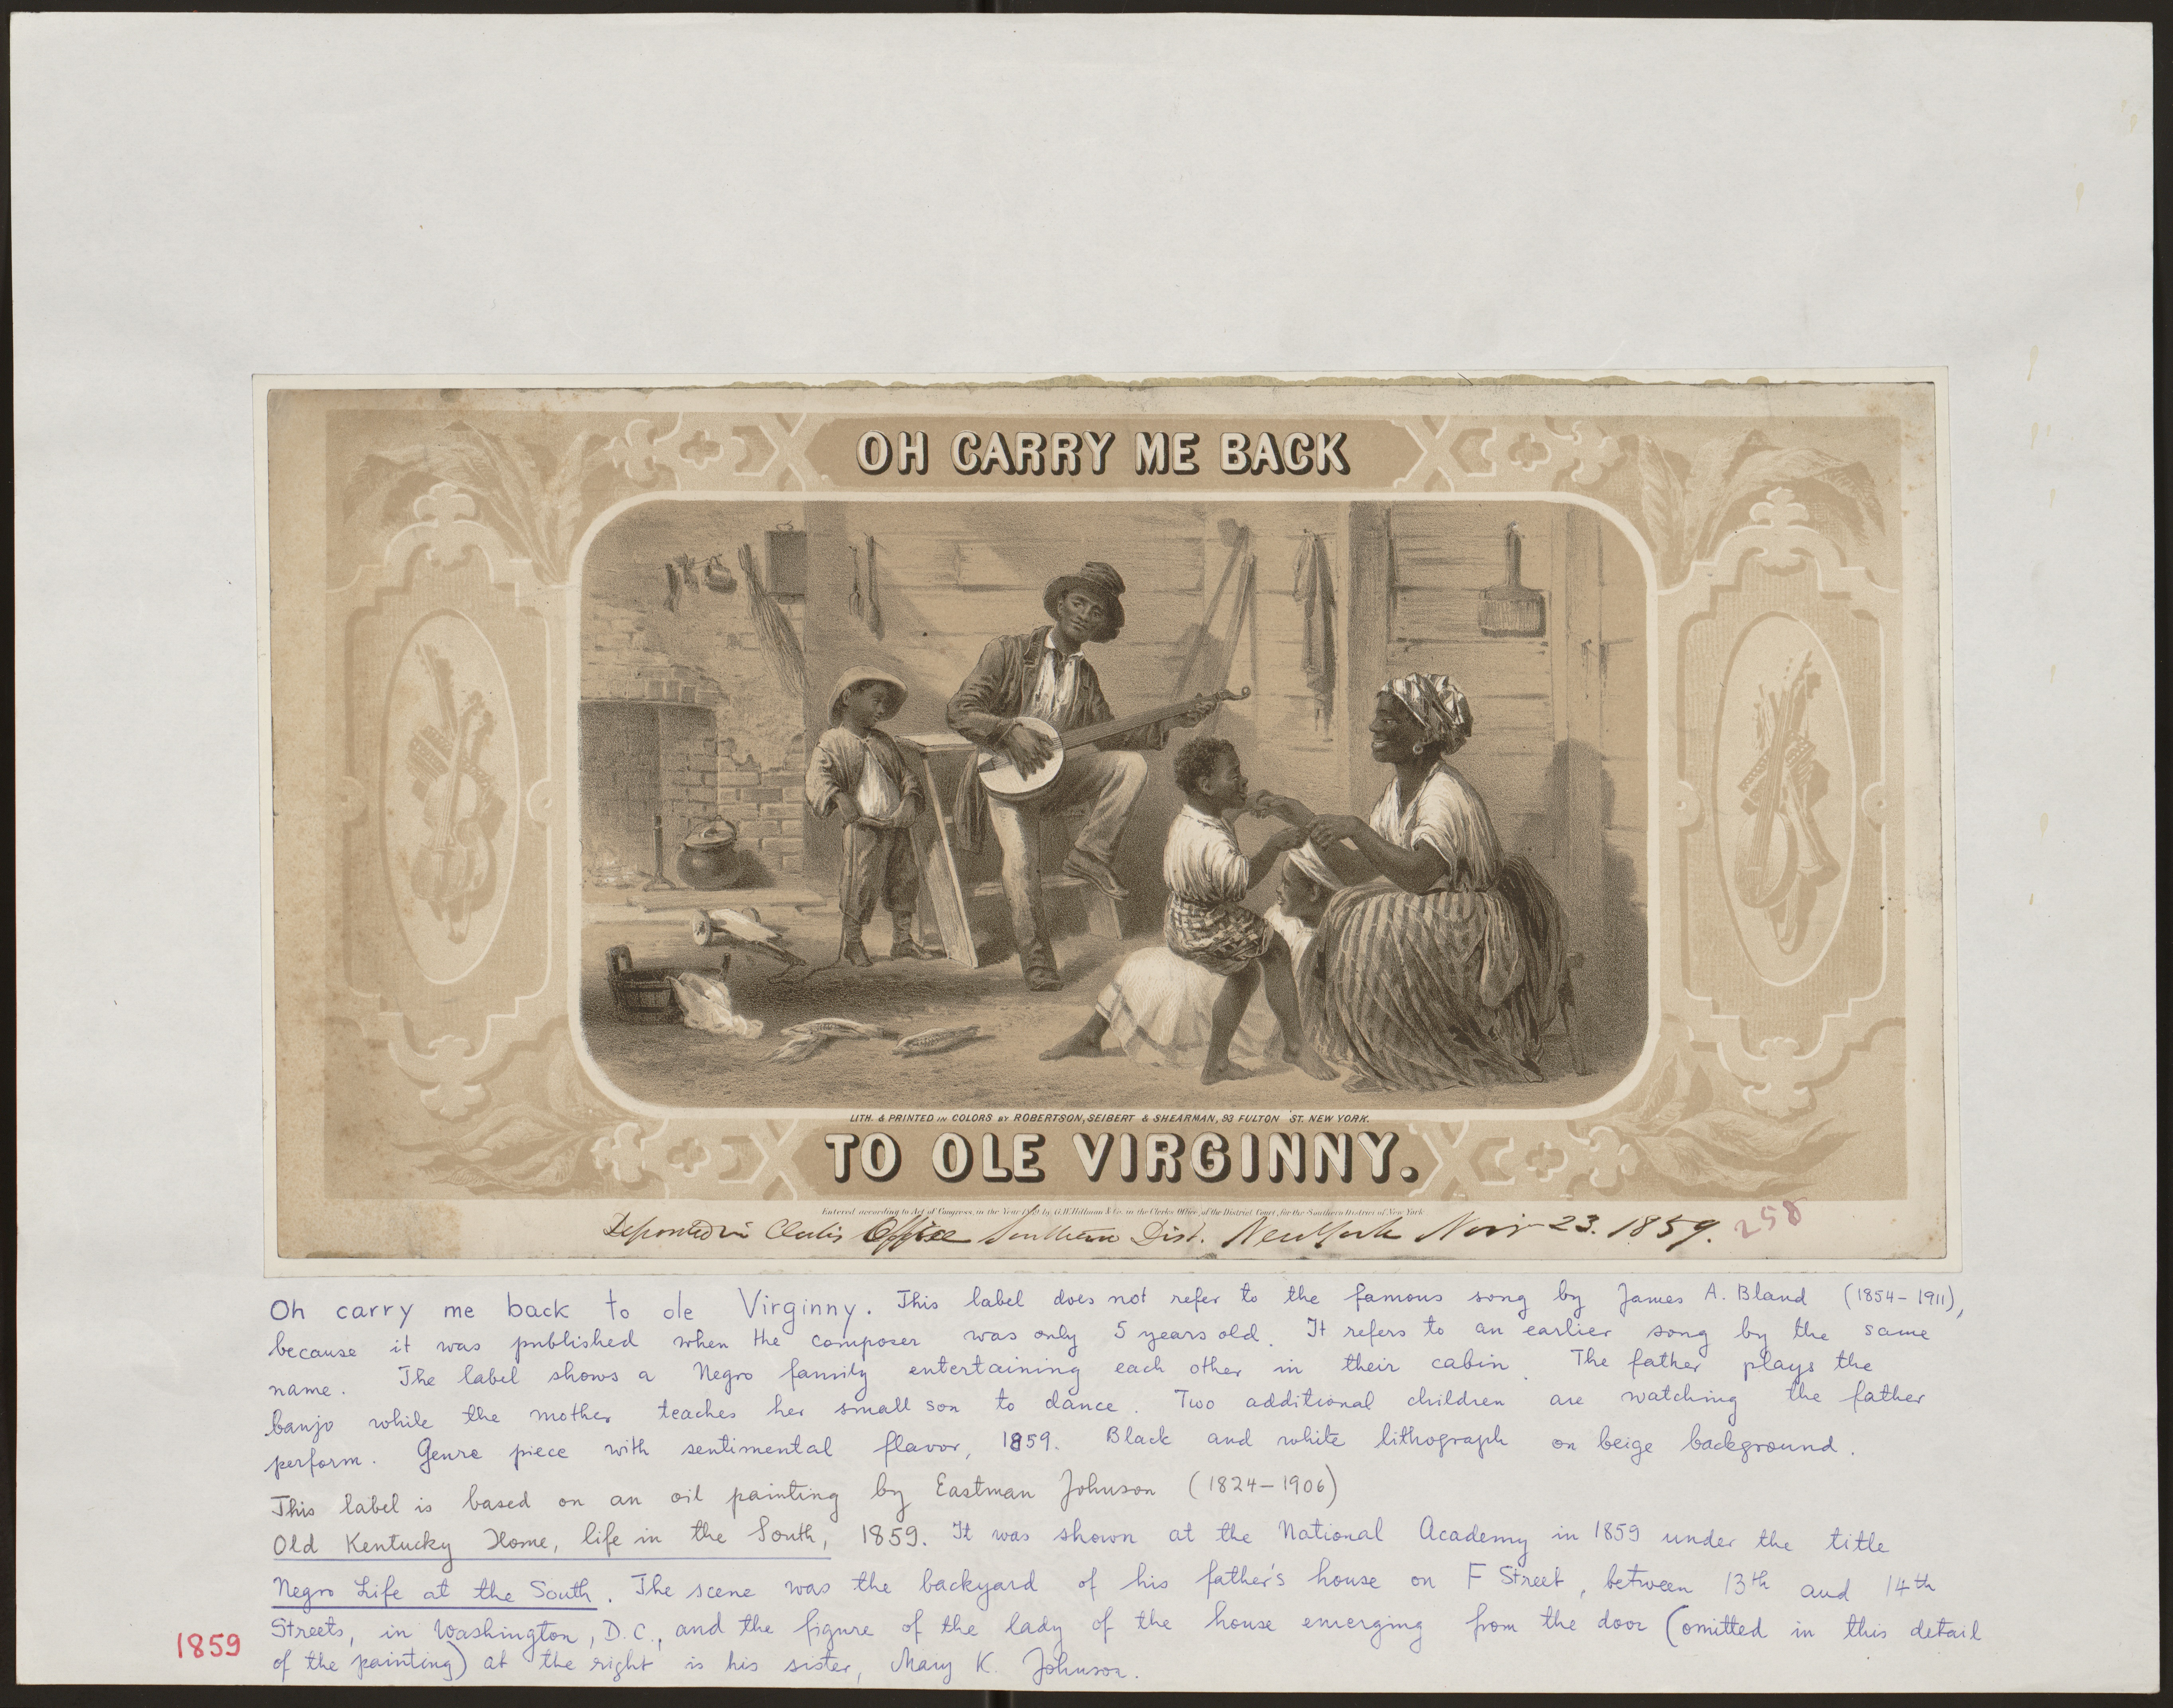 OH CARRY ME BACK
LITH. & PRINTED IN COLORS BY ROBERTSON, SEIBERT & SHEARMAN, 93 FULTON ST. NEW YORK.
TO OLE VIRGINNY.
Entered according to Act of Congress, in the Year 1859 by G.W. Hillman & Co. in the Clerks Office, of the District Court, for the Southern District of New York
Deposited in Clerks Office Southern Dist. New York Nov 23. 1859.
258
Oh carry me back to ole Virginny. This label does not refer to the famous song by James A. Bland (1854-1911),
because it was published when the composer was only 5 years old. It refers to an earlier song by the same
name. The label shows a Negro family entertaining each other in their cabin. The father plays the
banjo while the mother teaches her small son to dance. Two additional children are watching the father
perform. Genre piece with sentimental flavor, 1859. Black and white lithograph on beige background.
This label is based on an oil painting by Eastman Johnson (1824-1906)
Old Kentucky Home, life in the South, 1859. It was shown at the National Academy in 1859 under the title
Negro Life at the South. The scene was the backyard of his father's house on F Street, between 13th and 14th
Streets, in Washington, D.C., and the figure of the lady of the house emerging from the door (omitted in this detail
of the painting) at the right is his sister, Mary K. Johnson.
1859